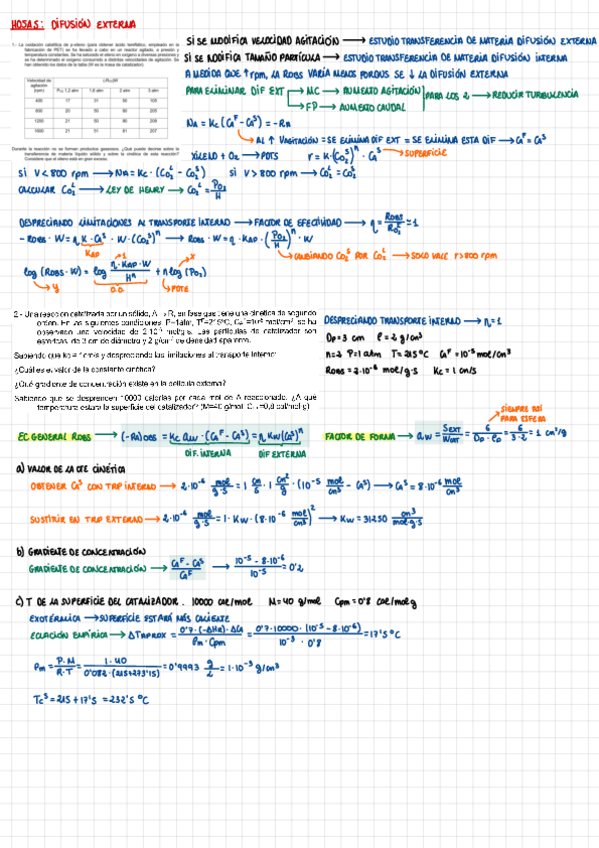 HOJAS: DIFUSIÓN EXTERNA
1.- La oxidación catalítica de p-xileno (para obtener ácido tereftálico, empleado en la
fabricación de PET) se ha llevado a cabo en un reactor agitado, a presión y
temperatura constantes. Se ha saturado el xileno en oxígeno a diversas presiones y
se ha determinado el oxígeno consumido a distintas velocidades de agitación. Se
han obtenido los datos de la tabla (W es la masa de catalizador).
Velocidad de agitación (rpm)
1,2 atm 1,6 atm 2 atm 3 atm
400 17 31 50 105
600 20 50
1200 21 50 86 208
1600 21 51 81 207
Durante la reacción no se forman productos gaseosos. ¿Qué puede decirse sobre la
transferencia de materia líquido sólido y sobre la cinética de esta reacción?
Considere que el xileno está en gran exceso.
SI SE MODIFICA VELOCIDAD AGITACIÓN → ESTUDIO TRANSFERENCIA DE MATERIA DIFUSIÓN EXTERNA
SI SE MODIFICA TAMAÑO PARTÍCULA → ESTUDIO TRANSFERENCIA DE MATERIA DIFUSIÓN INTERNA
A MEDIDA QUE ↑ rpm, LA ROBS VARÍA MENOS PORQUE SE ↓ LA DIFUSIÓN EXTERNA
PARA ELIMINAR DIF EXT → MC → AUMENTO AGITACIÓN
→ FP → AUMENTO CAUDAL
PARA LOS 2 → REDUCIR TURBULENCIA
NA = Kc (CA^F - CA^S) = -RA
→ AL ↑ VAGITACIÓN = SE ELIMINA DIF EXT = SE ELIMINA ESTA DIF → CA^F = CA^S
XILENO + O2 → PDTS r = K·(CO2^S)^n · CA^S → SUPERFICIE
SI V < 800 rpm → NA = Kc · (CO2^L - CO2^S) SI V > 800 rpm → CO2^L = CO2^S
CALCULAR CO2^L → LEY DE HENRY → CO2^L = PO2/H
DESPRECIANDO LIMITACIONES AL TRANSPORTE INTERNO → FACTOR DE EFECTIVIDAD → η = ROBS/RO2^S = 1
- ROBS · W = η K · CA^S · W · (CO2^S)^n → ROBS · W = η · KAP · (PO2/H)^n · W
KAP
→ CAMBIANDO CO2^S POR CO2^L → SOLO VALE r > 800 rpm
log (ROBS · W) = log η · KAP · W / H^n + n log (PO2)
y 1 O.O. PDTE x
2.- Una reacción catalizada por un sólido, A → R, en fase gas tiene una cinética de segundo
orden. En las siguientes condiciones: P=1atm, Tª=215ºC, CA^F=10⁻⁵ mol/cm³ se ha
observado una velocidad de 2·10⁻⁶ mol/g·s. Las partículas de catalizador son
esféricas, de 3 cm de diámetro y 2 g/cm³ de densidad aparente.
Sabiendo que kc = 1 cm/s y despreciando las limitaciones al transporte interno:
¿Cuál es el valor de la constante cinética?
¿Qué gradiente de concentración existe en la película externa?
Sabiendo que se desprenden 10000 calorías por cada mol de A reaccionado. ¿A qué
temperatura estará la superficie del catalizador? (M=40 g/mol, Cp=0,8 cal/mol g)
DESPRECIANDO TRANSPORTE INTERNO → η = 1
Dp = 3 cm ρ = 2 g/cm³
n = 2 P = 1 atm T = 215 ºC CA^F = 10⁻⁵ mol/cm³
ROBS = 2·10⁻⁶ mol/g·s Kc = 1 cm/s
SIEMPRE 6 PARA ESFERA
EC GENERAL ROBS → (-RA)OBS = Kc aw · (CA^F - CA^S) = η Kw (CA^S)^n
DIF. INTERNA DIF EXTERNA
FACTOR DE FORMA → aw = SEXT/WCAT = 6/(Dp · ρp) = 6/(3·2) = 1 cm²/g
a) VALOR DE LA CTE CINÉTICA
OBTENER CA^S CON TRP INTERNO → 2·10⁻⁶ mol/g·s = 1 cm/s · 1 cm²/g · (10⁻⁵ mol/cm³ - CA^S) → CA^S = 8·10⁻⁶ mol/cm³
SUSTITUIR EN TRP EXTERNO → 2·10⁻⁶ mol/g·s = 1 · Kw · (8·10⁻⁶ mol/cm³)² → Kw = 31250 cm³/mol·g·s
b) GRADIENTE DE CONCENTRACIÓN
GRADIENTE DE CONCENTRACIÓN → (CA^F - CA^S)/CA^F → (10⁻⁵ - 8·10⁻⁶)/10⁻⁵ = 0'2
c) T DE LA SUPERFICIE DEL CATALIZADOR. 10000 cal/mol M = 40 g/mol Cpm = 0'8 cal/mol g
EXOTÉRMICA → SUPERFICIE ESTARÁ MÁS CALIENTE
ECUACIÓN EMPÍRICA → ΔTAPROX = 0'7 · (-ΔHR) · ΔCA / (ρm · Cpm) = 0'7 · 10000 · (10⁻⁵ - 8·10⁻⁶) / (10⁻³ · 0'8) = 17'5 ºC
ρm = P·M/R·T = 1·40/(0'082 · (215+273'15)) = 0'9993 g/l = 1·10⁻³ g/cm³
Tc^S = 215 + 17'5 = 232'5 ºC